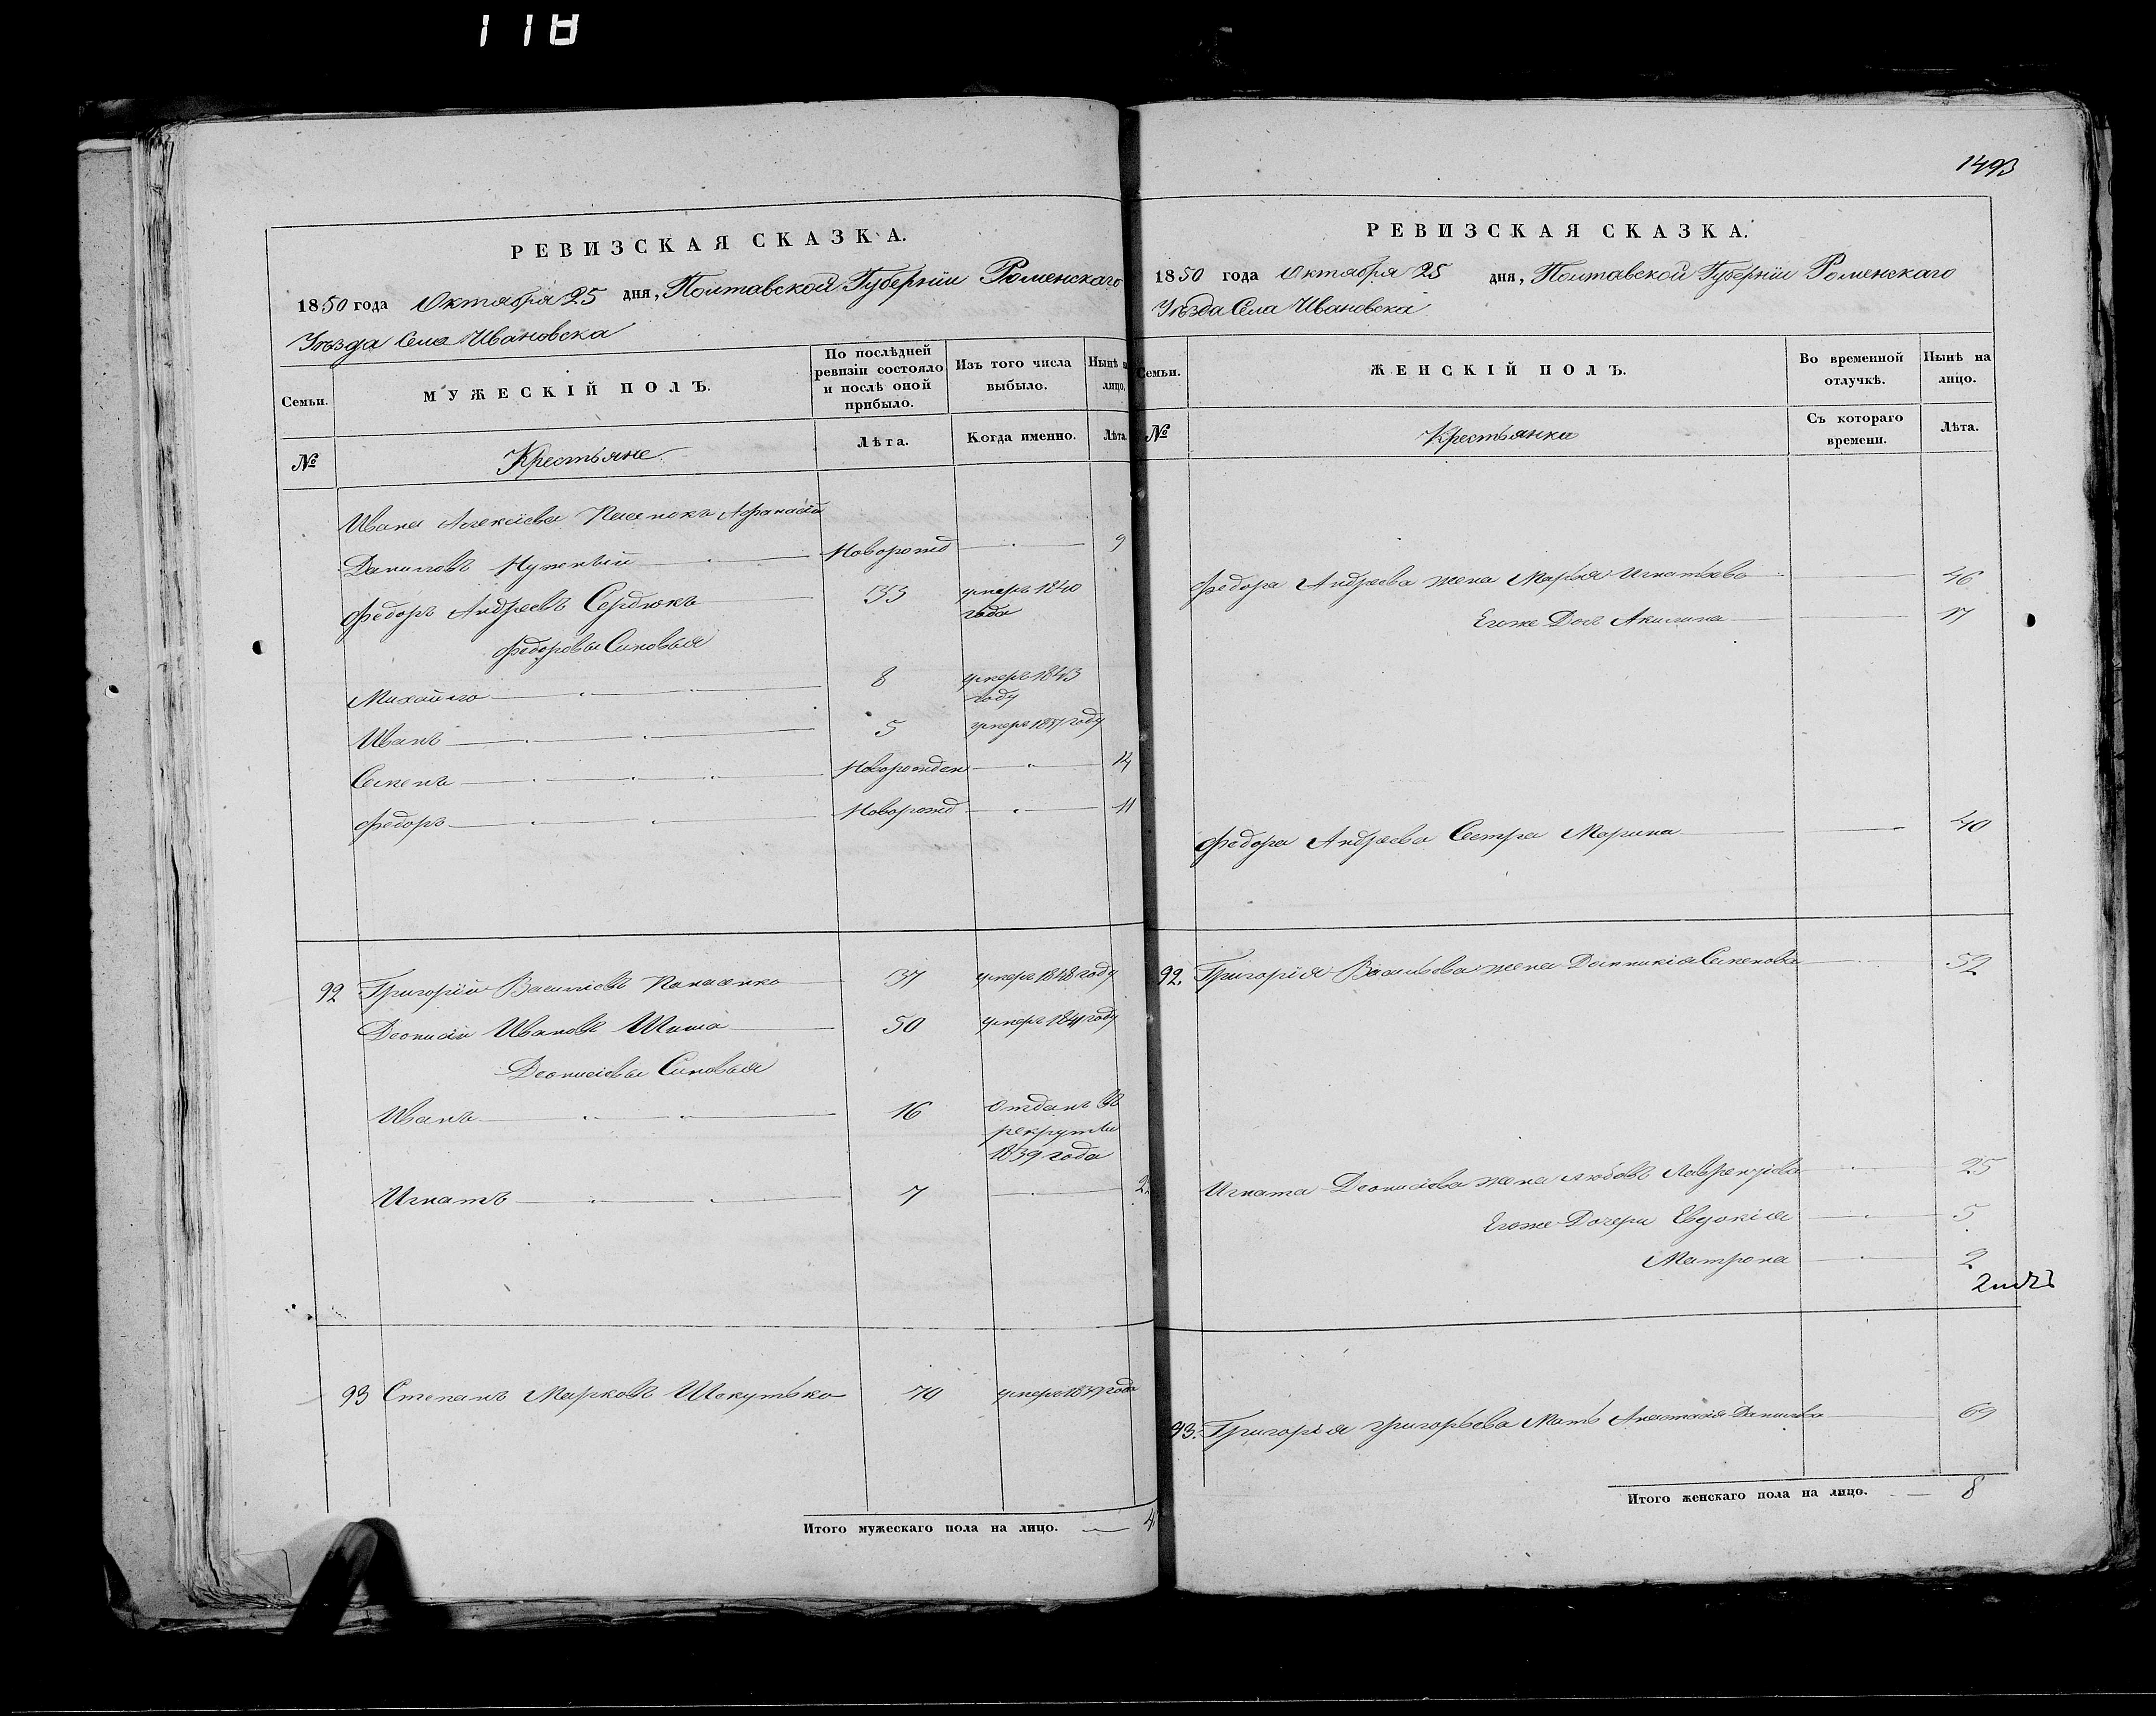 118
1493
РЕВИЗСКАЯ СКАЗКА.
1850 года Октября 25 дня, Полтавской Губерніи Роменскаго
Уѣзда Села Ивановска
Семьи.
МУЖЕСКІЙ ПОЛЪ.
По послѣдней ревизіи состояло и послѣ оной прибыло.
Изъ того числа выбыло.
Нынѣ на лицо.
№
Крестьяне
Лѣта.
Когда именно.
Лѣта
Ивана Алексіева Афанасій
Даниловъ Нужный Новорожд 9
Федоръ Андреевъ Сердюкъ 33 умеръ 1840
года
Федоровы Сыновья
Михайло 8 умеръ 1843
году
Иванъ 5 умеръ 1837 году
Семенъ Новорожден 14
Федоръ Новорожд 11
92 Григорій Василіевъ Панасенко 37 умеръ 1848 году
Деонисій Ивановъ Шита 50 умеръ 1841 году
Деонисіевы Сыновья
Иванъ 16 Отданъ въ
рекруты
1839 года
Игнатъ 7 2
93 Степанъ Марковъ Шекутько 70 умеръ 1847 года
Итого мужескаго пола на лицо. 4
РЕВИЗСКАЯ СКАЗКА.
1850 года Октября 25 дня, Полтавской Губерніи Роменскаго
Уѣзда Села Ивановска
Семьи.
ЖЕНСКІЙ ПОЛЪ.
Во временной отлучкѣ.
Нынѣ на лицо.
№
Крестьянки
Съ котораго времени.
Лѣта.
Федора Андреева жена Марья Игнатьева 46
Егоже Доч Акилина 17
Федора Андреева Сестра Марина 40
92. Григорія Васильева жена Домникія Семенова 52
Игната Деонисіева жена Любовъ Лаврентіева 25
Егоже Дочери Евдокія 5
Матрона 2
93. Григорія Григорьева Мать Анастасія Данилова 69
Итого женскаго пола на лицо. 8